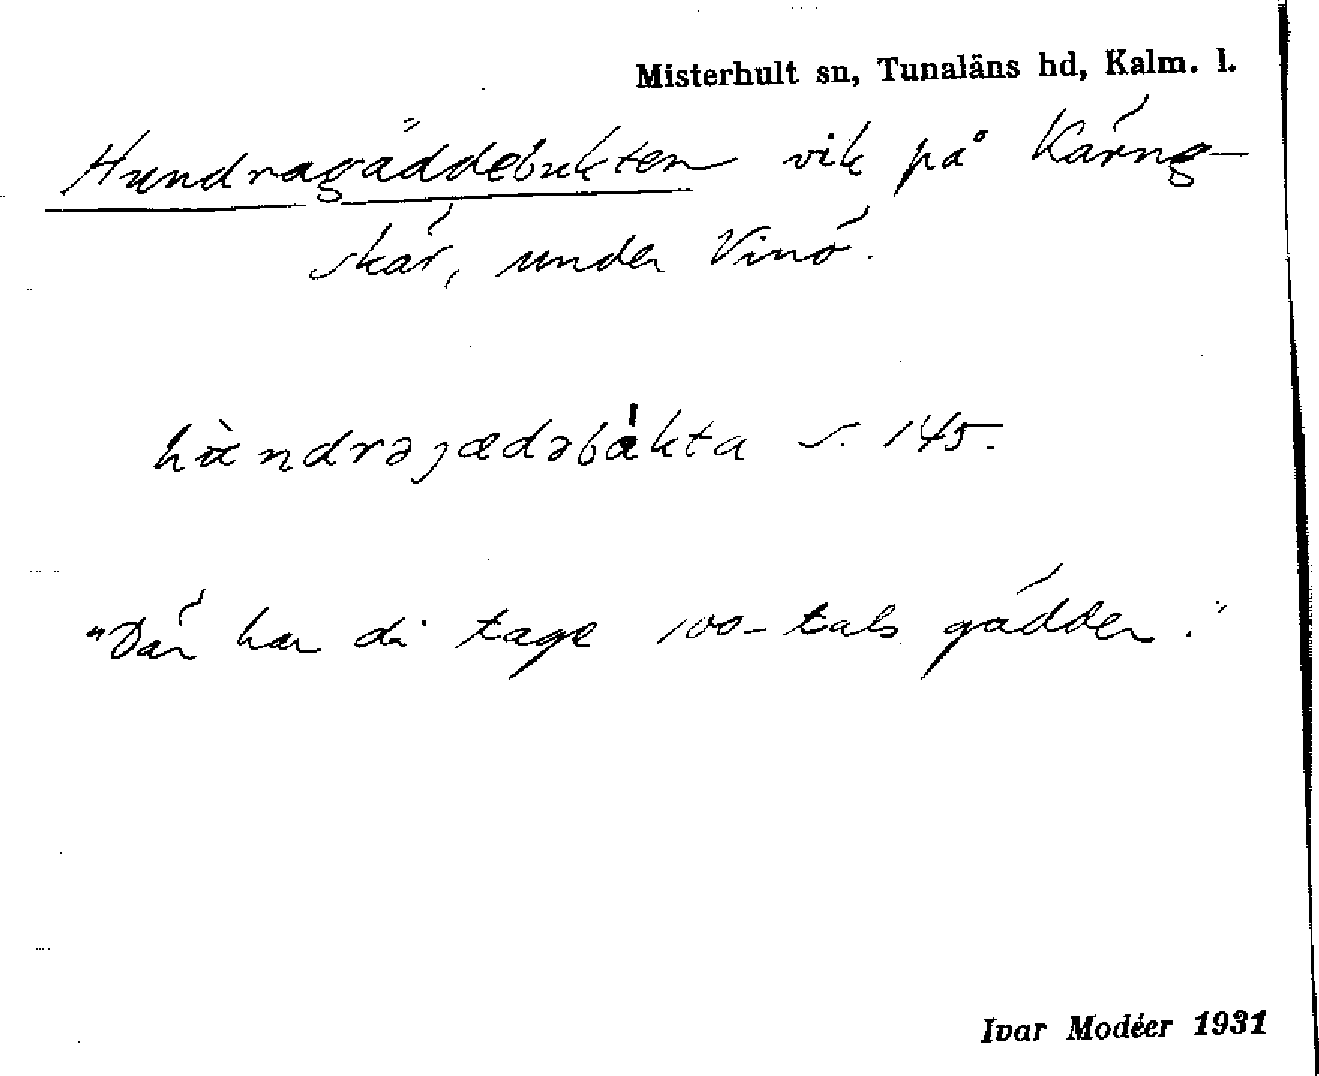 Misterhult sn, Tunaläns hd, Kalm. l.
Hundragäddebukten vik på Kärng-
skär, under Vinö.
hùndrəgædəbàkta s. 145.
"Där har di tage 100-tals gädder."
Ivar Modéer 1931